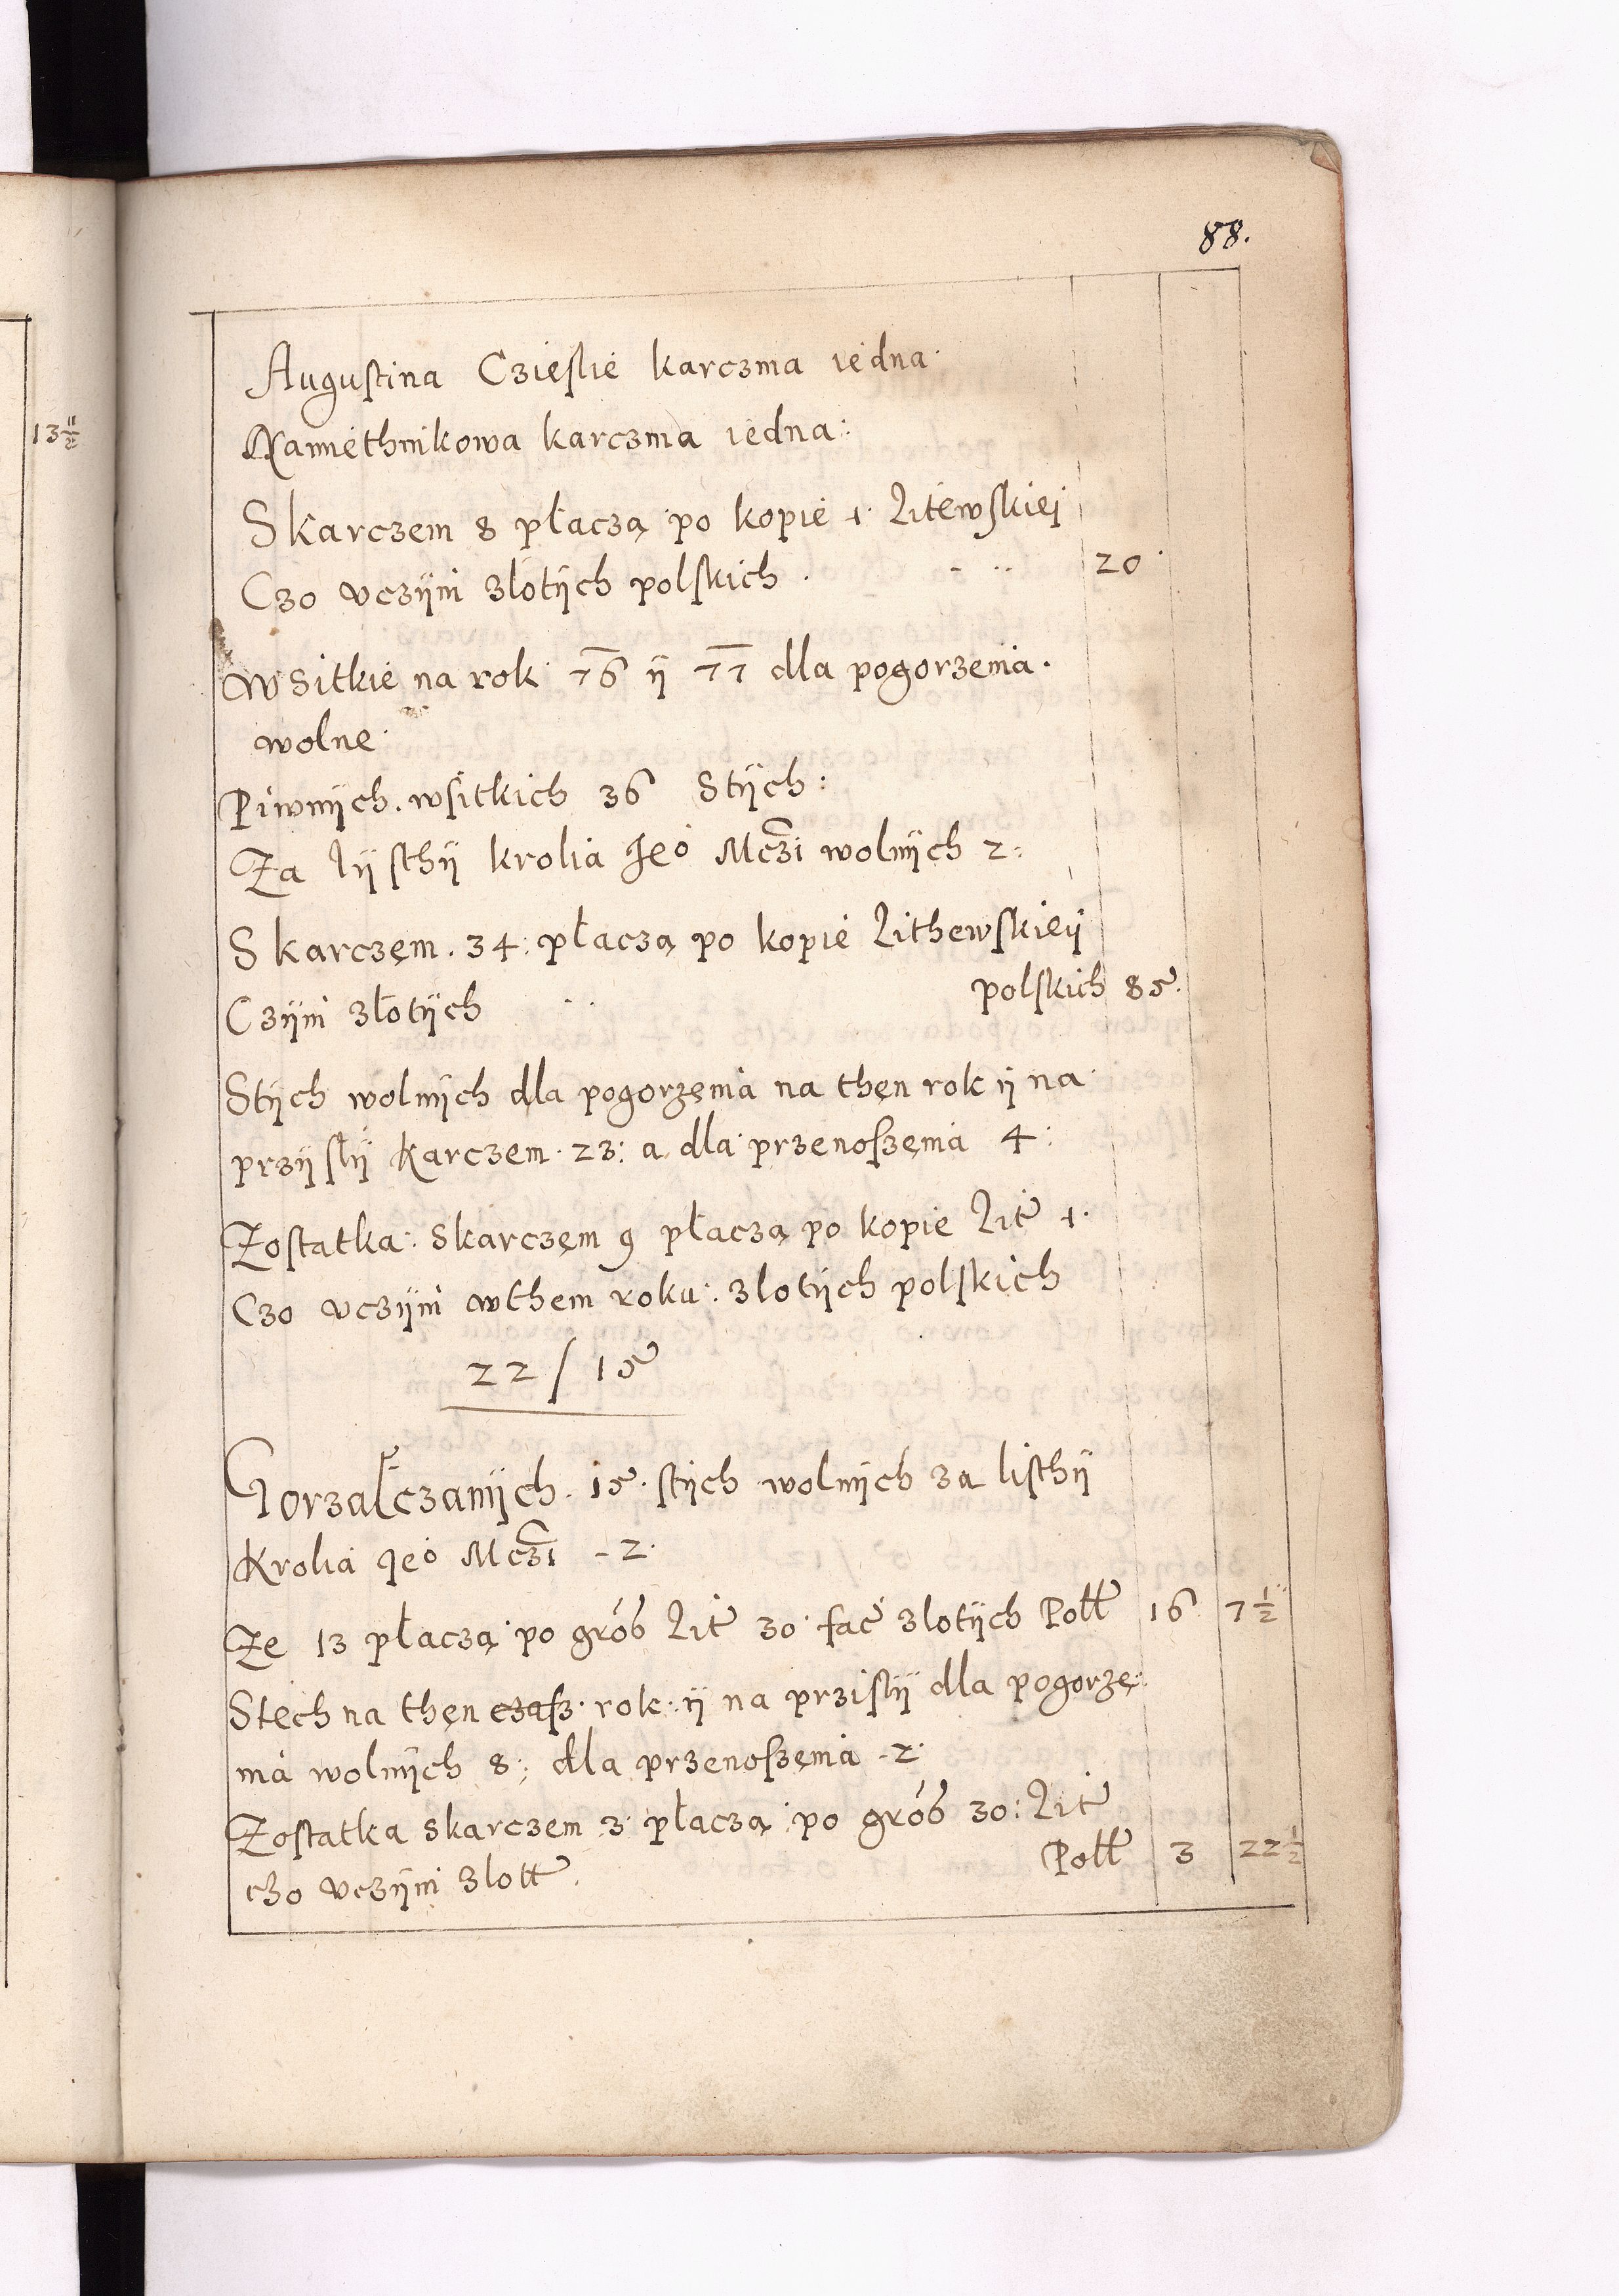 88.
13 11/12
Augustina Czieslie karczma iedna
Namiethnikowa karczma iedna:
Skarczem 8 płaczą po kopie 1 Litewskiej
Czo vczÿni złotÿch polskich . 20
Wsitkie na rok 76 ÿ 77 dla pogorzenia.
wolne
Piwnÿch. wsitkich 36 Stÿch:
Za lÿsthÿ krolia Jeo Mczi wolnÿch 2:
Skarczęm. 34: płaczą po kopie Lithewskieÿ
Czÿni złotÿch polskich 85.
Stÿch wolnÿch dla pogorzęnia na thęn rok ÿ na
przÿsłÿ Karczem. 23: a dla przenoszęnia 4:
Zostatka: skarczęm 9 płaczą po kopie Lit 1.
Czo vczÿni wthem roku: złotÿch polskich
22 / 15
Gorzałczanÿch. 15. stÿch wolnÿch za listhÿ
Krolia Jeo Mczi - 2.
Ze 13 płaczą po grób Lit 30 fac złotÿch Poll 16 7 1/2
Stech na thęn czasz. rok. ÿ na przisłÿ dla pogorzę:
nia wolnÿch 8: dla przenoszęnia - 2.
Zostatka skarczem 3 płaczą po grób 30: Lit
czo vczÿni złott. Poll 3 22 1/2